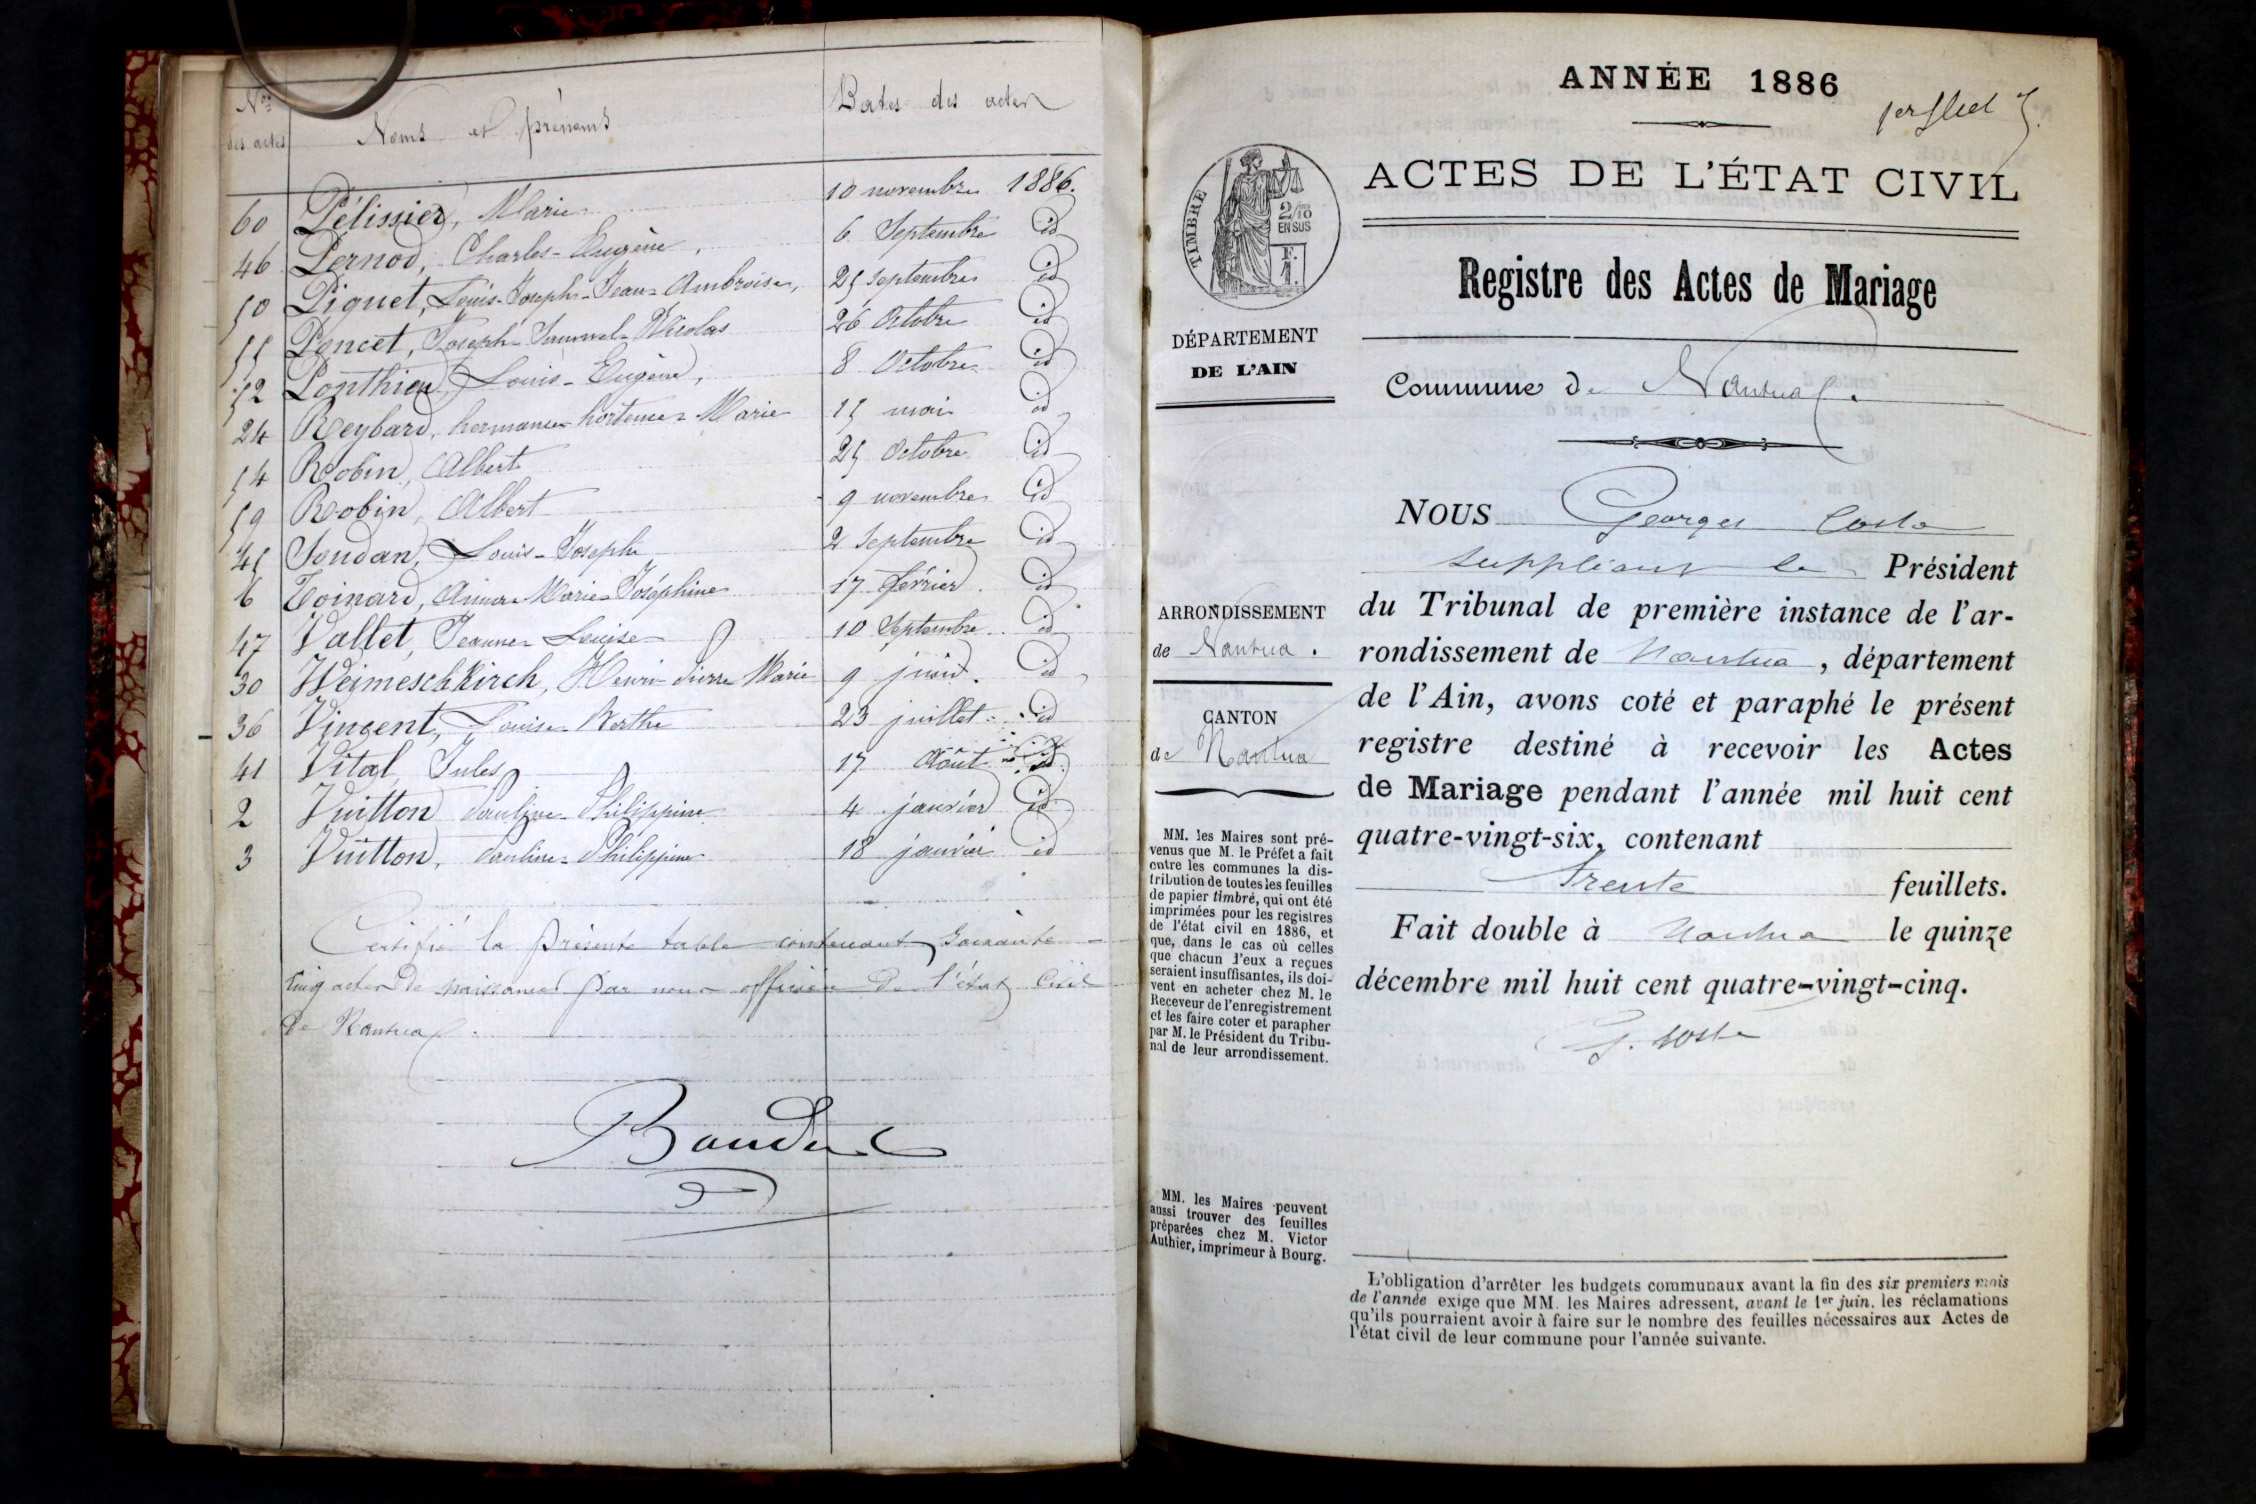 Nos des actes | Noms et prénoms | Dates des actes
60 Pélissier, Marie 10 novembre 1886.
46 Pernod, Charles-Eugène, 6 Septembre id
50 Piquet, Louis-Joseph-Jean-Ambroise, 25 septembre id
55 Poncet, Joseph-Nicolas 26 Octobre id
52 Ponthieu, Louis-Eugène, 8 Octobre id
24 Reybard, hermanse hortense Marie 15 mai id
54 Robin, Albert 25 Octobre id
59 Robin, Albert 9 novembre id
45 Soudan, Louis-Joseph 2 Septembre id
6 Toinard, Marie Joséphine 17 février id
47 Vallet, Jeanne Louise 10 Septembre id
30 Weimeschkirch, Henri Pierre Marie 9 juin. id
36 Vincent, Louise Berthe 23 juillet id
41 Vital, Jules 17 Août id
2 Vuitton Pauline Philippine 4 janvier id
3 Vuitton, Pauline-Philippine 18 janvier id
Certifié la présente table contenant soixante
cinq actes de naissance par nous officier de l'état Civil
de Nantua.
ANNÉE 1886
1er
ACTES DE L'ÉTAT CIVIL
TIMBRE
2/10
EN SUS
F.
1.
Registre des Actes de Mariage
DÉPARTEMENT
DE L'AIN
Commune de Nantua.
NOUS Georges Coste
suppléant le Président
du Tribunal de première instance de l'ar-
rondissement de Nantua, département
de l'Ain, avons coté et paraphé le présent
registre destiné à recevoir les Actes
de Mariage pendant l'année mil huit cent
quatre-vingt-six, contenant
Trente feuillets.
Fait double à Nantua le quinze
décembre mil huit cent quatre-vingt-cinq.
G. Coste
ARRONDISSEMENT
de Nantua.
CANTON
de Nantua
MM. les Maires sont pré-
venus que M. le Préfet a fait
entre les communes la dis-
tribution de toutes les feuilles
de papier timbré, qui ont été
imprimées pour les registres
de l'état civil en 1886, et
que, dans le cas où celles
que chacun d'eux a reçues
seraient insuffisantes, ils doi-
vent en acheter chez M. le
Receveur de l'enregistrement
et les faire coter et parapher
par M. le Président du Tribu-
nal de leur arrondissement.
MM. les Maires peuvent
aussi trouver des feuilles
préparées chez M. Victor
Authier, imprimeur à Bourg.
L'obligation d'arrêter les budgets communaux avant la fin des six premiers mois
de l'année exige que MM. les Maires adressent, avant le 1er juin. les réclamations
qu'ils pourraient avoir à faire sur le nombre des feuilles nécessaires aux Actes de
l'état civil de leur commune pour l'année suivante.